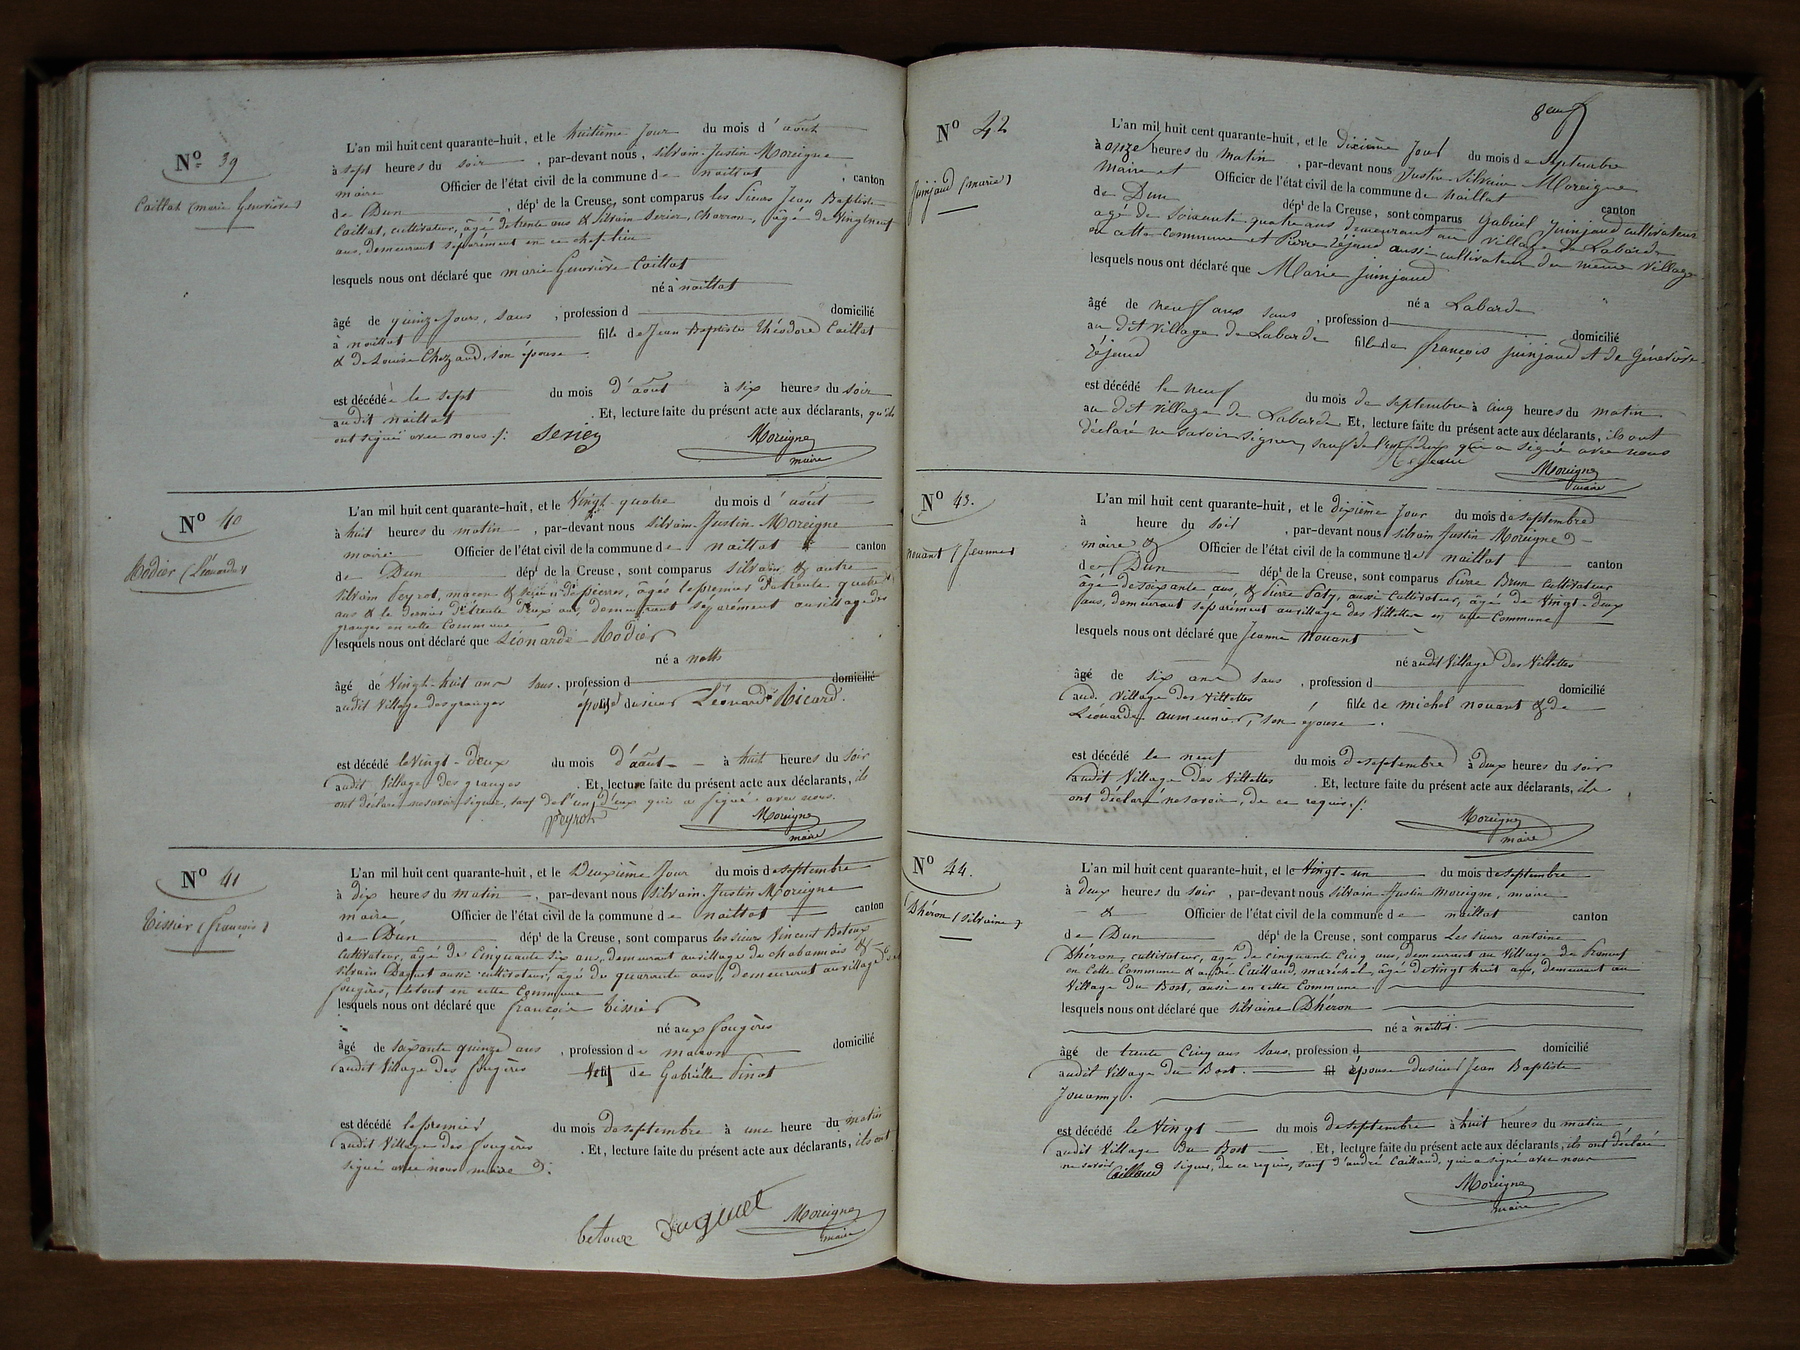 No 39
Caillat (marie Geneviève)
L'an mil huit cent quarante-huit, et le huitième Jour du mois d'août
à sept heures du soir, par-devant nous, silvain-Justin Moreigne
maire Officier de l'état civil de la commune de naillat, canton
de Dun, dépt de la Creuse, sont comparus les Sieurs Jean Baptiste
Caillat, cultivateur, âgé de trente ans & silvain serier, charron, âgé de vingt neuf
ans, demeurant séparément en ce chef-lieu
lesquels nous ont déclaré que marie Geneviève Caillat
né à naillat
âgé de quinze Jours, sans, profession d domicilié
à naillat fille de Jean Baptiste théodore Caillat
& de Louise Chezaud, son épouse
est décédée le sept du mois d'août à six heures du soir
audit naillat. Et, lecture faite du présent acte aux déclarants, qu'ils
ont signé avec nous ./:
Serier Moreigne
maire
No 40
Rodier (Léonarde)
L'an mil huit cent quarante-huit, et le vingt-quatre du mois d'août
à huit heures du matin, par-devant nous silvain-Justin Moreigne
maire Officier de l'état civil de la commune de naillat & canton
de Dun dépt de la Creuse, sont comparus silvain & autre
silvain Peyrot, maçon & de pierres, âgés le premier de trente quatre
ans & le dernier de trente deux ans, demeurant séparément au village des
granges en cette Commune
lesquels nous ont déclaré que Léonarde Rodier
né a noth
âgé de vingt-huit ans sans, profession d domicilié
audit village des granges épouse du sieur Léonard Ricard.
est décédé le vingt-deux du mois d'août à huit heures du soir
audit village des granges. Et, lecture faite du présent acte aux déclarants, ils
ont déclaré ne savoir signer, sauf de l'un d'eux qui a signé avec nous.
Peyrot Moreigne
maire
No 41
Tissier (françois)
L'an mil huit cent quarante-huit, et le Deuxième Jour du mois de septembre
à dix heures du matin, par-devant nous silvain-Justin Moreigne
maire Officier de l'état civil de la commune de naillat canton
de Dun dépt de la Creuse, sont comparus les sieurs Vincent Betoux
cultivateur, âgé de cinquante six ans, demeurant au village de Chabannais &
silvain Daguet aussi cultivateur, âgé de quarante ans, demeurant au village des
fougères, le tout en cette Commune
lesquels nous ont déclaré que françois Tissier
né aux fougères
âgé de soixante quinze ans, profession de maçon domicilié
audit village des fougères Veuf de Gabrielle Pinot
est décédé le premier du mois de septembre à une heure du matin
audit village des fougères. Et, lecture faite du présent acte aux déclarants, ils ont
signé avec nous maire
betoux Daguet Moreigne
maire
No 42
Juinjaud (marie)
L'an mil huit cent quarante-huit, et le Dixième Jour du mois de Septembre
à onze heures du matin, par-devant nous Justin-Silvain Moreigne
maire et Officier de l'état civil de la commune de naillat canton
de Dun dépt de la Creuse, sont comparus Gabriel Juinjaud cultivateur
agé de soixante quatre ans demeurant au village de Labarde
en cette commune et Pierre Léjaud aussi cultivateur du même village
lesquels nous ont déclaré que Marie Juinjaud
né a Labarde
âgé de neuf ans sans, profession d domicilié
au dit village de Labarde fille de françois Juinjaud et de Généviève
Léjaud
est décédé le neuf du mois de septembre à cinq heures du matin
au dit village de Labarde Et, lecture faite du présent acte aux déclarants, ils ont
déclaré ne savoir signer, sauf de l'un d'eux qui a signé avec nous
Moreigne
maire
No 43.
nouant (Jeanne)
L'an mil huit cent quarante-huit, et le dixième Jour du mois de septembre
à heure du soir, par-devant nous silvain Justin Moreigne
maire & Officier de l'état civil de la commune de naillat canton
de Dun dépt de la Creuse, sont comparus Pierre Brun Cultivateur
âgé de soixante ans, & Pierre Faty, aussi Cultivateur, âgé de vingt-deux
ans, demeurant séparément au village des Villettes en cette Commune
lesquels nous ont déclaré que Jeanne nouant
né audit village des Villettes
âgé de six ans sans, profession d domicilié
aud. village des Villettes fille de michel nouant & de
Léonarde aumeunier, son épouse.
est décédé le neuf du mois de septembre à deux heures du soir
audit village des Villettes. Et, lecture faite du présent acte aux déclarants, ils
ont déclaré ne savoir, de ce requis ./:
Moreigne
maire
No 44.
Dhéron (silvaine)
L'an mil huit cent quarante-huit, et le vingt-un du mois de septembre
à deux heures du soir, par-devant nous silvain-Justin moreigne, maire
& Officier de l'état civil de la commune de naillat canton
de Dun dépt de la Creuse, sont comparus Les sieurs antoine
Dhéron, cultivateur, âgé de cinquante cinq ans, demeurant au village de
en cette Commune & andré Caillaud, maréchal, âgé de vingt huit ans, demeurant au
village du Bost, aussi en cette Commune.
lesquels nous ont déclaré que silvaine Dhéron
né à naillat.
âgé de trente cinq ans sans, profession d domicilié
audit village du Bost. épouse du sieur Jean Baptiste
Jouanny.
est décédé le vingt du mois de septembre à huit heures du matin
audit village du Bost. Et, lecture faite du présent acte aux déclarants, ils ont déclaré
ne savoir signer, de ce requis, sauf d'andré Caillaud, qui a signé avec nous
Caillaud
Moreigne
maire